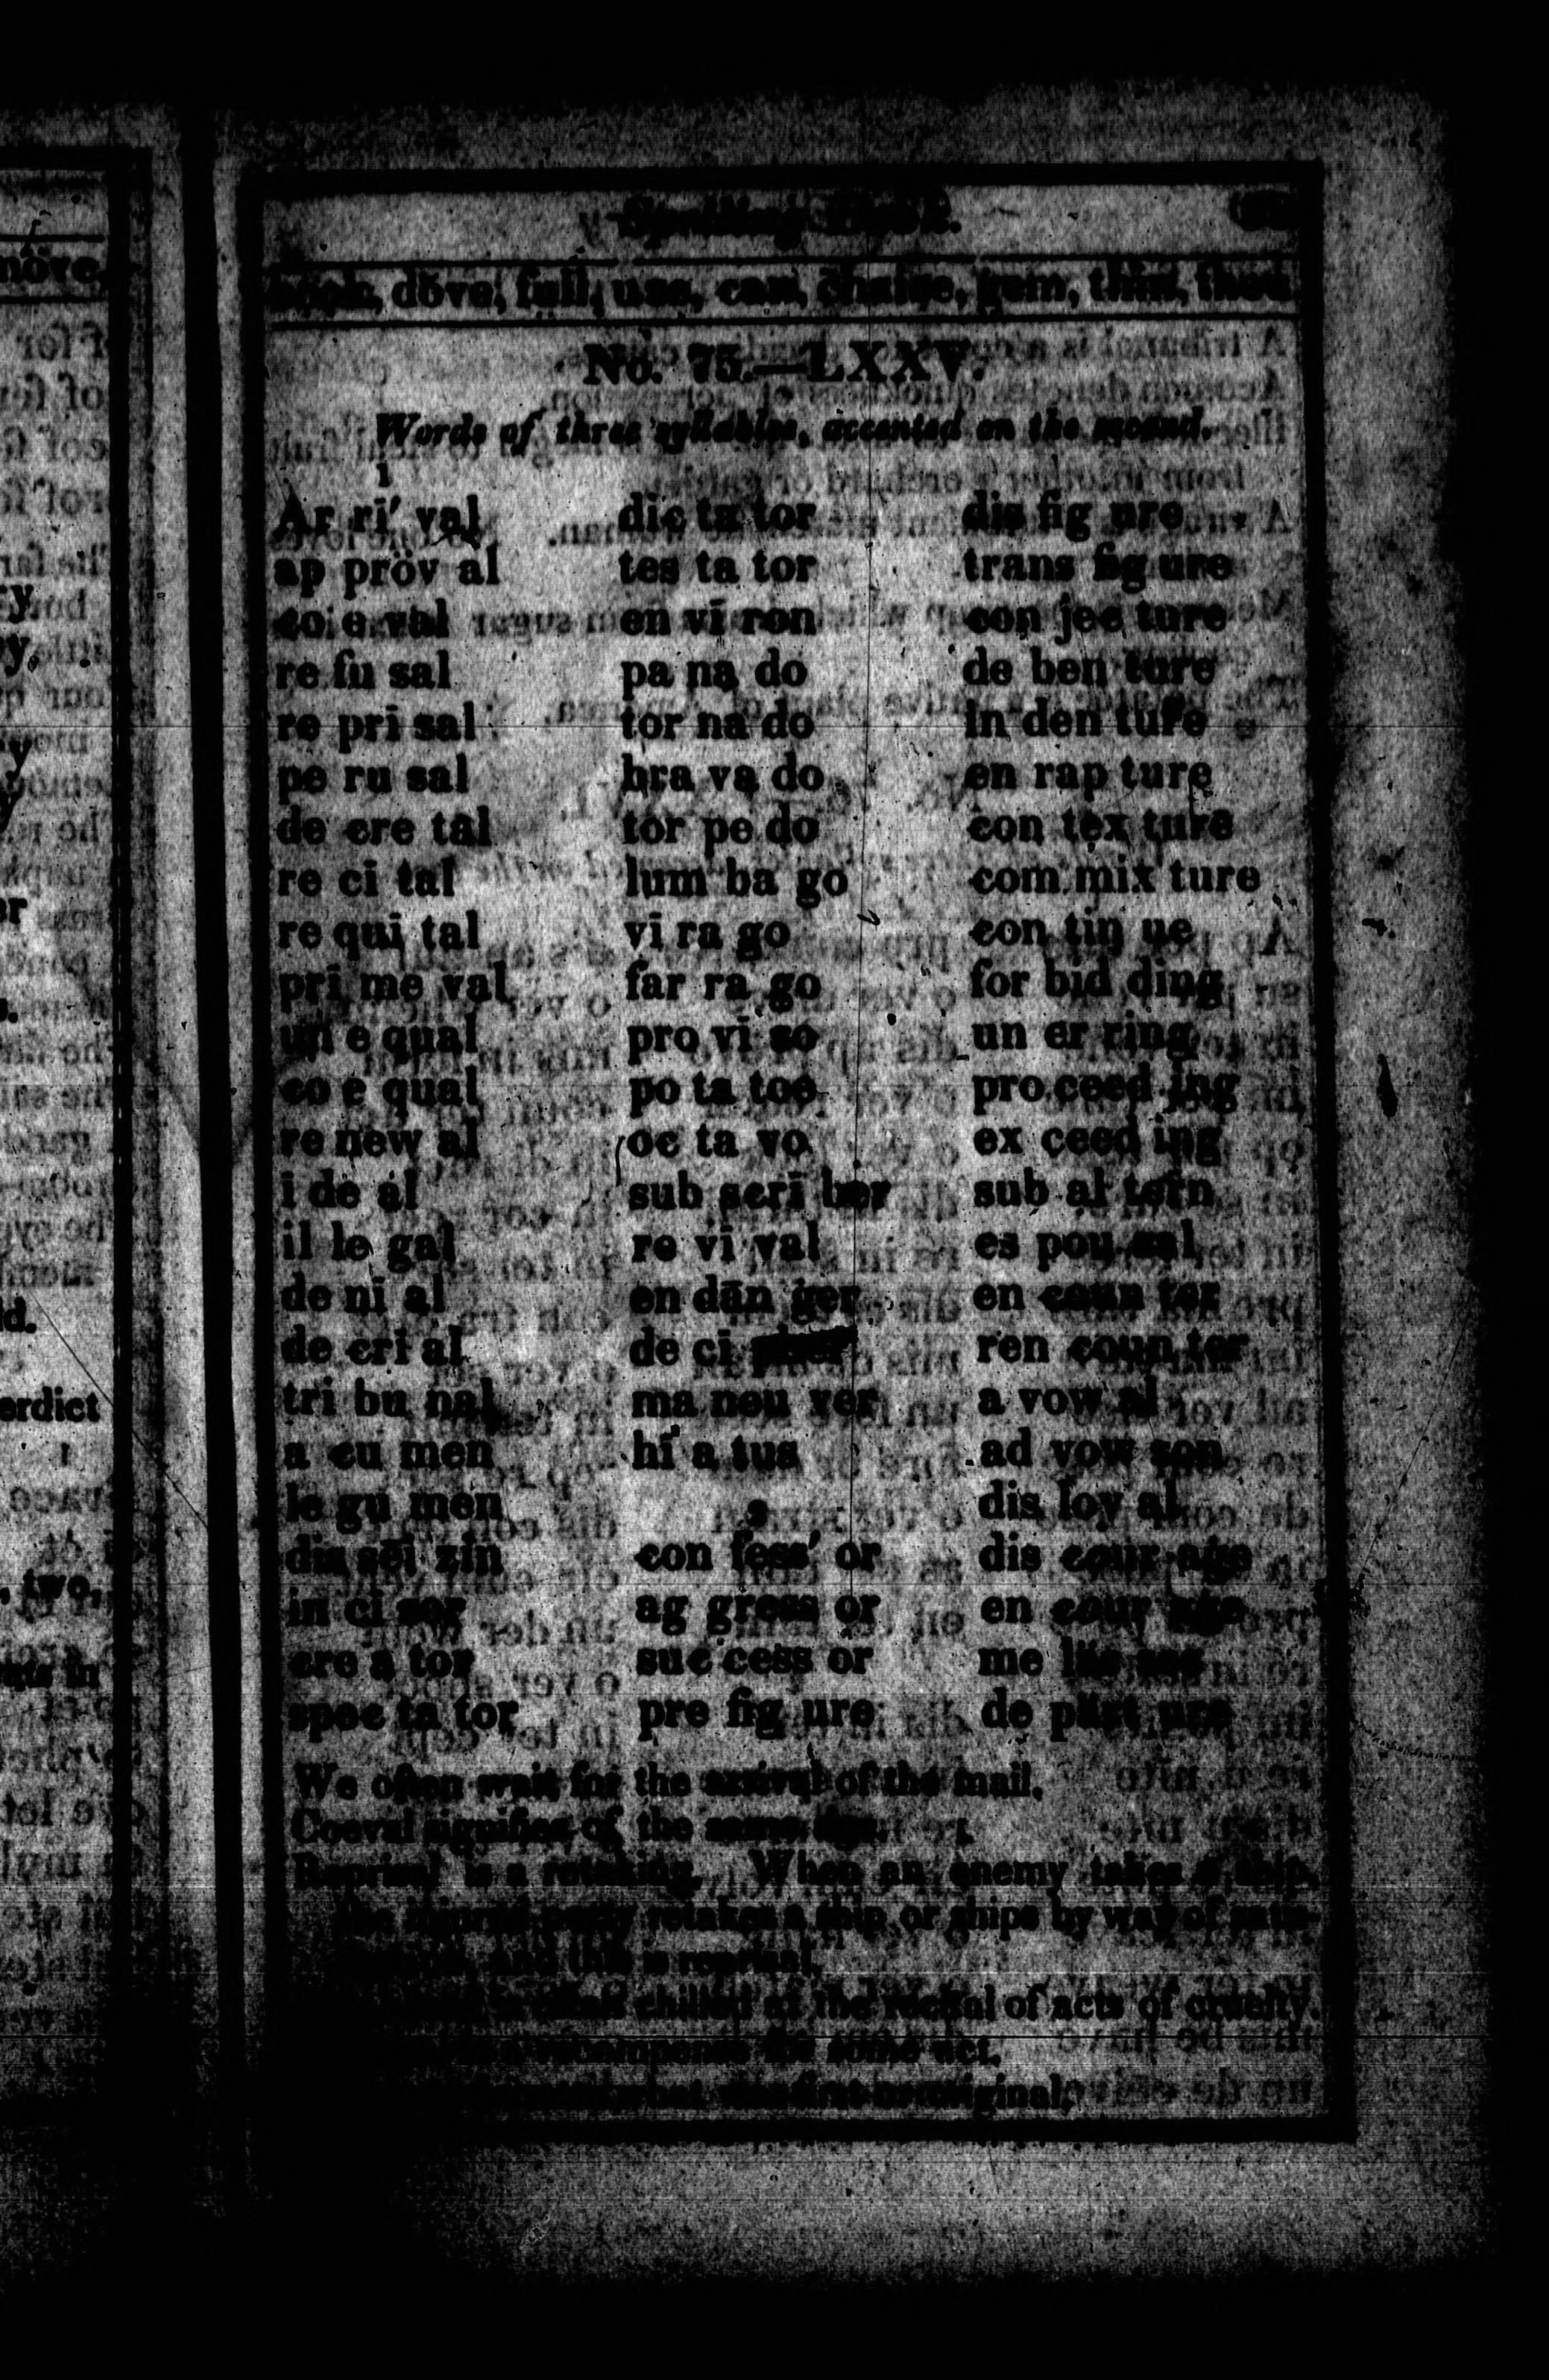 Spelling Book.
book, dòve, full, use, can, chaise, gem, thin, thou
No. 75.—LXXV.
Words of three syllables, accented on the second.
1
Ar rī′ val
ap pröv al
co e val
re fu sal
re pri sal
pe ru sal
de cre tal
re ci tal
re qui tal
pri me val
un e qual
co e qual
re new al
i de al
il le gal
de nī al
de crī al
tri bu nal
a cu men
le gu men
dis seī zin
in cī sor
cre a tor
spec ta tor
dic ta tor
tes ta tor
en vī ron
pa na do
tor na do
bra va do
tor pe do
lum ba go
vi ra go
far ra go
pro vī so
po ta toe
oc ta vo
sub scrī ber
re vi val
en dān ger
de ci pher
ma neu ver
hī a tus
2
con fess′ or
ag gress or
suc cess or
pre fig ure
dis fig ure
trans fig ure
con jec ture
de ben ture
in den ture
en rap ture
con tex ture
com mix ture
con tin ue
for bid ding
un er ring
pro ceed ing
ex ceed ing
sub al tern
es pou sal
en coun ter
ren coun ter
a vow al
ad vow son
dis loy al
dis cour age
en cour age
me läs ses
de pärt ure
We often wait for the arrival of the mail.
Coeval signifies of the same age.
Reprisal is a retaking. When an enemy takes a ship,
the injured party retakes a ship or ships by way of satis-
and this is reprisal.
chilled at the recital of acts of cruelty.
recompense for some act.
what was first or original.
möre,